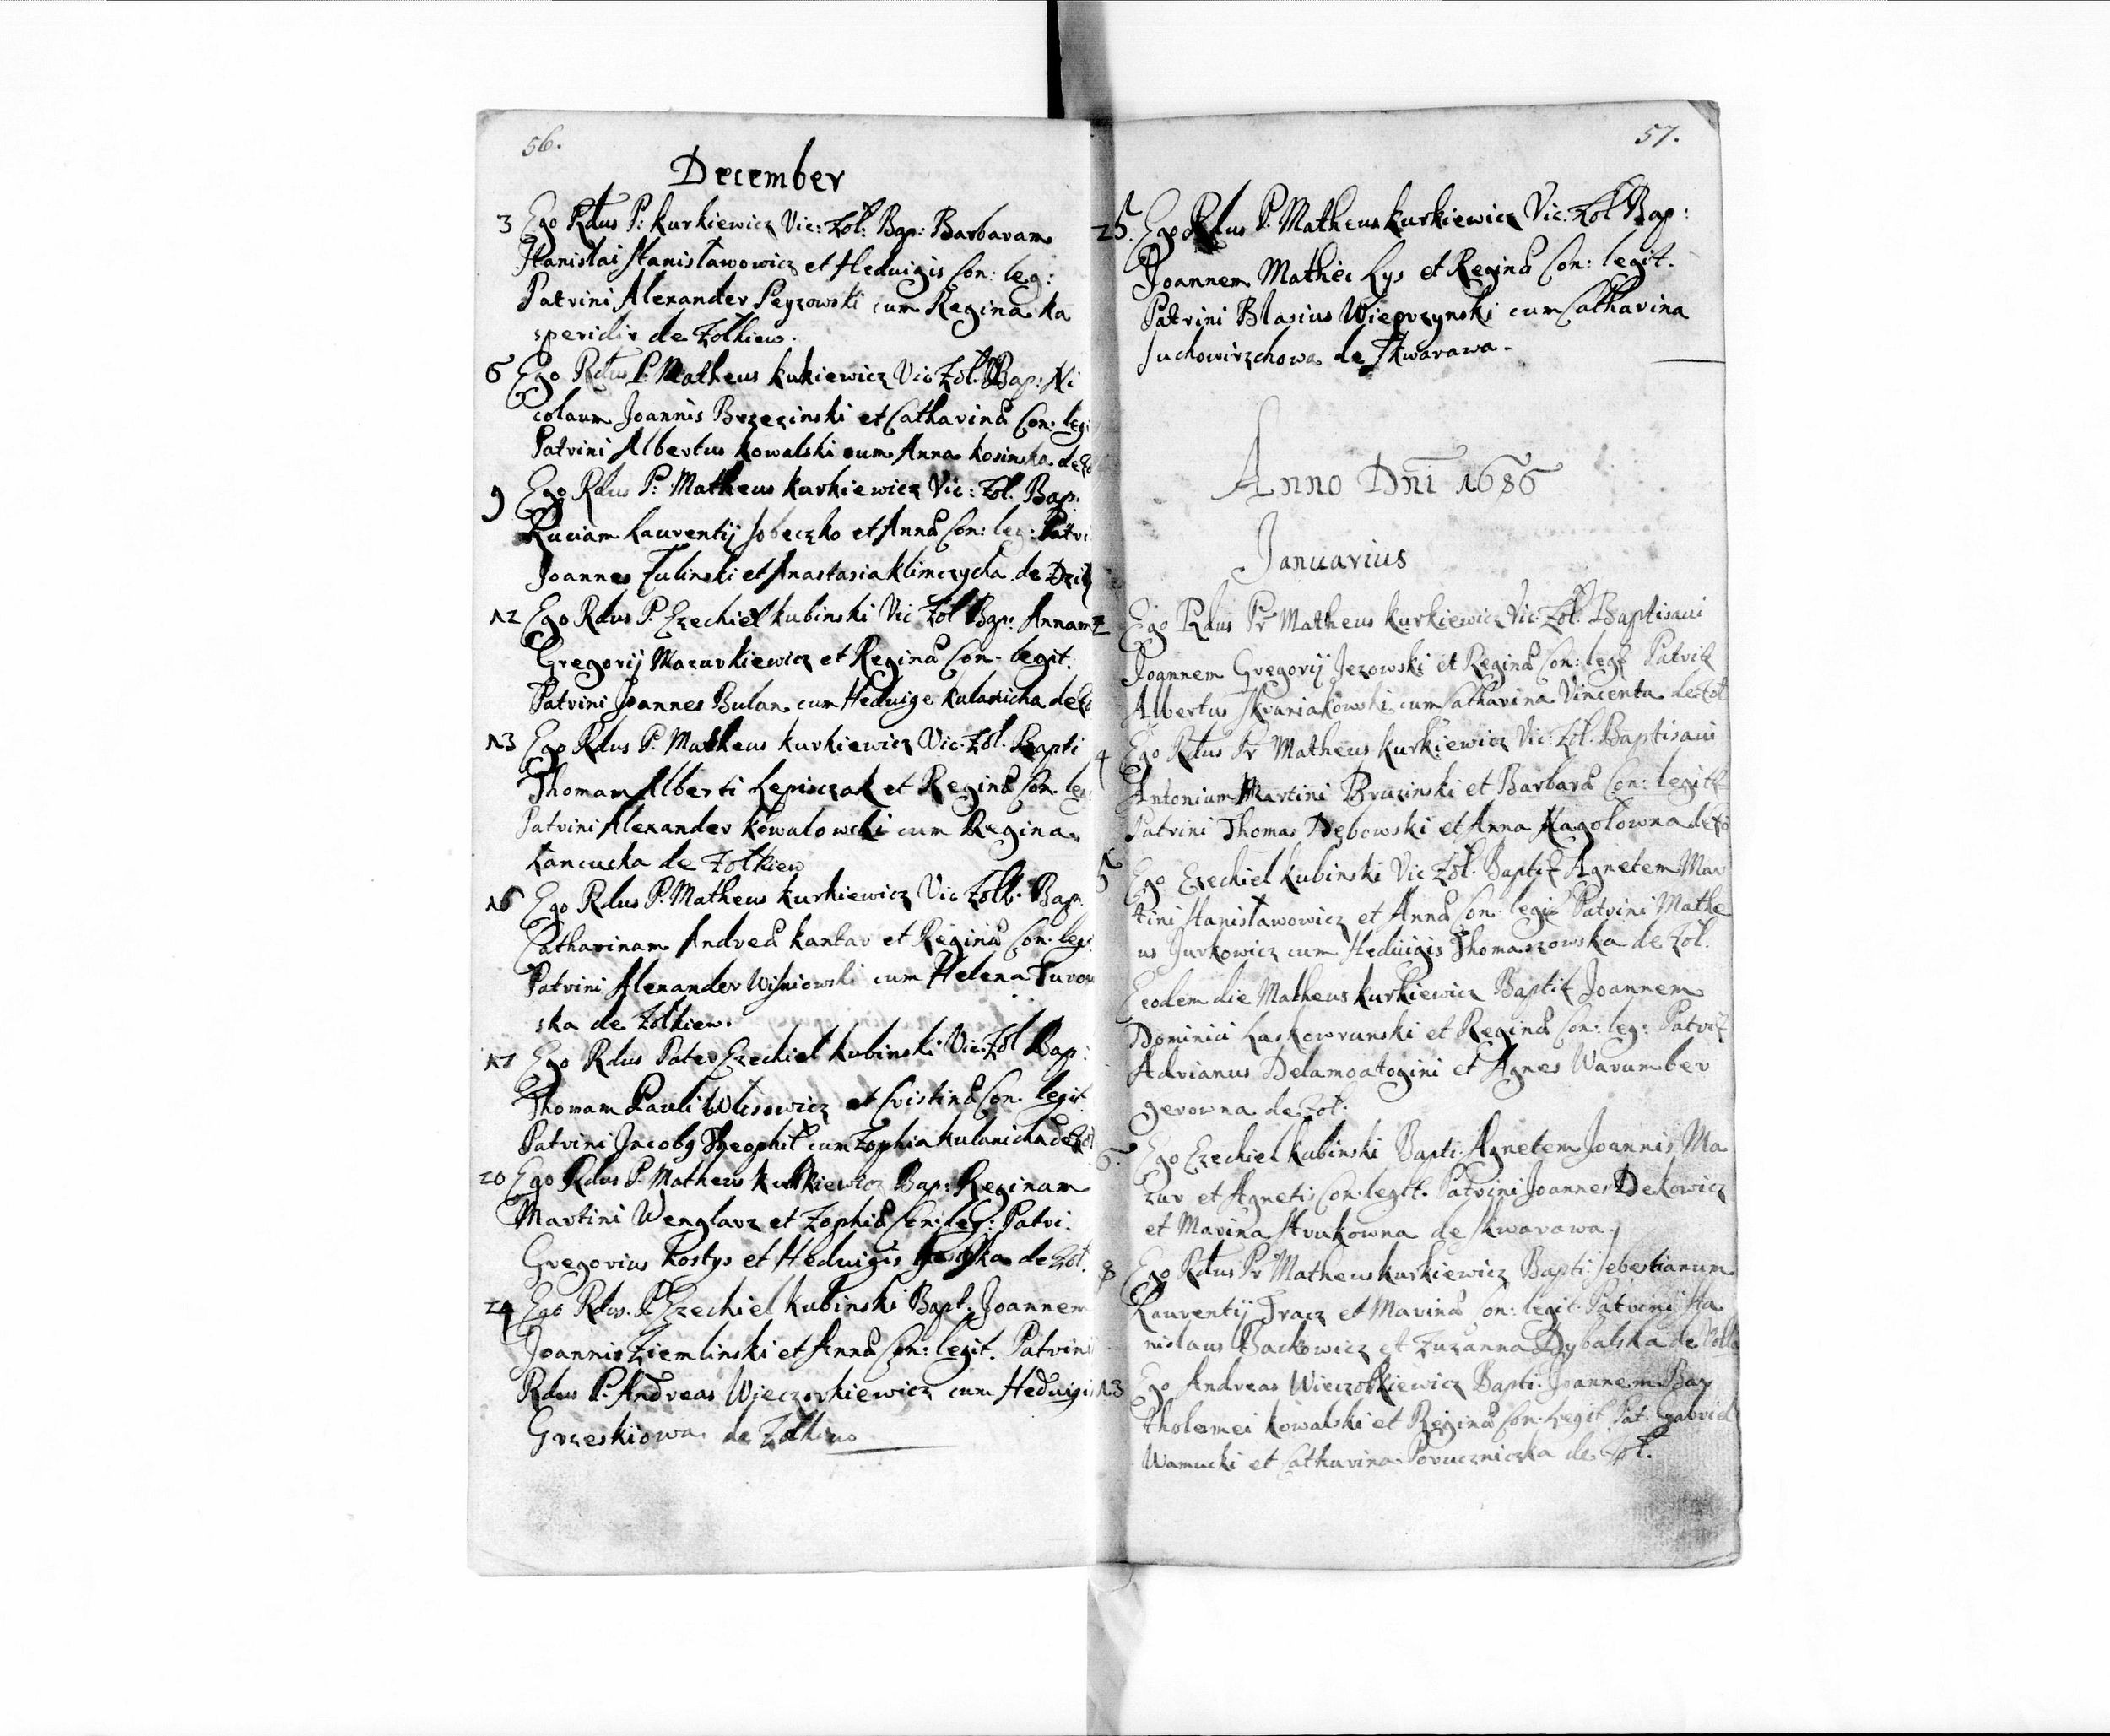 56.
December
3 Ego Rdus P: Kurkiewicz Vic: Zol: Bap: Barbaram
Stanislai Stanisławowicz et Hedvigis Con: leg:
Patrini Alexander Peyzowski cum Regina Ka
speridis de Zolkiew.
6 Ego Rdus P: Matheus Kukiewicz Vic Zol. Bap: Ni
colaum Joannis Brzezinski et Catharina Con: legi
Patrini Albertus Kowalski cum Anna Kosinska de Zo
9 Ego Rdus P: Matheus Kurkiewicz Vic: Zol. Bap.
Luciam Laurentij Sobeczko et Anna Con: leg: Patri
Joannes Zulinski et Anastasia Klimczycha de
12 Ego Rdus P. Ezechiel Kubinski Vic Zol Bap: Annam
Gregorij Mazurkiewicz et Regina Con. legit.
Patrini Joannes Bulan cum Hedvige Kulanicha de Zo
13 Ego Rdus P. Matheus Kurkiewicz Vic. Zol. Bapti
Thomam Alberti Lepisczak et Regina Con. leg
Patrini Alexander Kowalowski cum Regina
Lancucka de Zolkiew
16 Ego Rdus P. Matheus Kurkiewicz Vic Zolk. Bap.
Catharinam Andrea Kantar et Regina Con. legi
Patrini Alexander Wisniowski cum Helena Turow
ska de Zolkiew.
17 Ego Rdus Pater Ezechiel Kubinski Vic. Zol Bap:
Thomam Pauli Wlisowicz et Cristina Con. legit.
Patrini Jacobg Theophil cum Zophia Kulanicha de Zol
20 Ego Rdus P. Matheus Kurkiewicz Bap: Reginam
Martini Wenglarz et Zophia Con: leg: Patri.
Gregorius Kostys et Hedvigis de Zol.
24 Ego Rdus. P. Ezechiel Kubinski Bapt. Joannem
Joannis Ziemlinski et Anna Con: legit. Patrini
Rdus P. Andreas Wieczorkiewicz cum Hedvigis
Grzeskiowa de Zolkiew
57.
25. Ego Rdus P. Matheus Kurkiewicz Vic. Zol Bap:
Joannem Mathei Lys et Regina Con: legit.
Patrini Blasius Wieprzynski cum Catharina
Suchowirzchowa de Skwarawa.
Anno Dni 1686
Januarius
2 Ego Rdus Pr Matheus Kurkiewicz Vic. Zol. Baptisavi
Joannem Gregorij Jezowski et Regina Con: legit Patrit
Albertus Skraniakowski cum Catharina Vincenta de Zol
4 Ego Rdus Pr Matheus Kurkiewicz Vic. Zol. Baptisavi
Antonium Martini Bruzinski et Barbara Con: legitt
Patrini Thomas Dębowski et Anna Kagołowna de Zo
5 Ego Ezechiel Kubinski Vic Zol. Baptit Agnetem Mar
tini Stanisławowicz et Anna Con. legit Patrini Mathe
us Jurkowicz cum Hedvigis Thomaszowska de Zol.
Eodem die Matheus Kurkiewicz Baptit Joannem
Dominici Laskowrunski et Regina Con: leg: Patrit
Adrianus Delamoatogini et Agnes Warumber
gerowna de Zol.
6. Ego Ezechiel Kubinski Bapti. Agnetem Joannis Ma
zur et Agnetis Con. legit. Patrini Joannes Dekowicz
et Marina Strukowna de Skwarawa.
8 Ego Rdus Pr Matheus Kurkiewicz Bapti Sebestianum
Laurentij Tracz et Marina Con: legit. Patrini Sta
nislaus Backowicz et Zuzanna Dybalska de Zolk
13 Ego Andreas Wieczorkiewicz Bapti. Joannem Bar
tholemei Kowalski et Regina Con. Legit Pat. Gabriel
Wamucki et Catharina Poruczniczka de Zol.